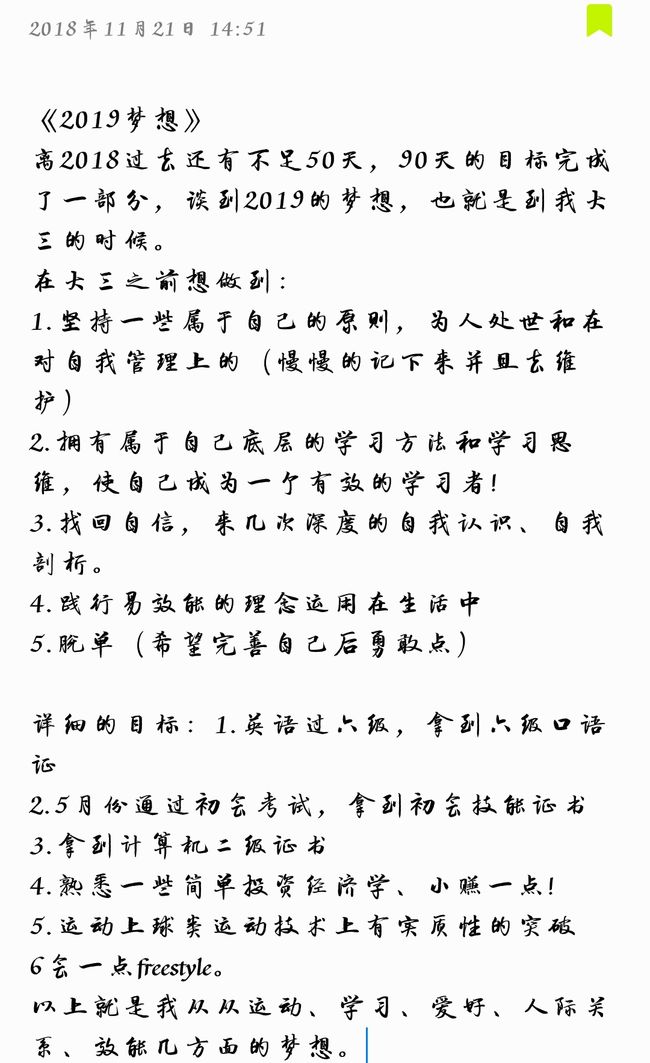 2018年11月21日 14:51
《2019梦想》
离2018过去还有不足50天，90天的目标完成
了一部分，谈到2019的梦想，也就是到我大
三的时候。
在大三之前想做到：
1.坚持一些属于自己的原则，为人处世和在
对自我管理上的（慢慢的记下来并且去维
护）
2.拥有属于自己底层的学习方法和学习思
维，使自己成为一个有效的学习者！
3.找回自信，来几次深度的自我认识、自我
剖析。
4.践行易效能的理念运用在生活中
5.脱单（希望完善自己后勇敢点）
详细的目标：1.英语过六级，拿到六级口语
证
2.5月份通过初会考试，拿到初会技能证书
3.拿到计算机二级证书
4.熟悉一些简单投资经济学、小赚一点！
5.运动上球类运动技术上有实质性的突破
6会一点freestyle。
以上就是我从从运动、学习、爱好、人际关
系、效能几方面的梦想。